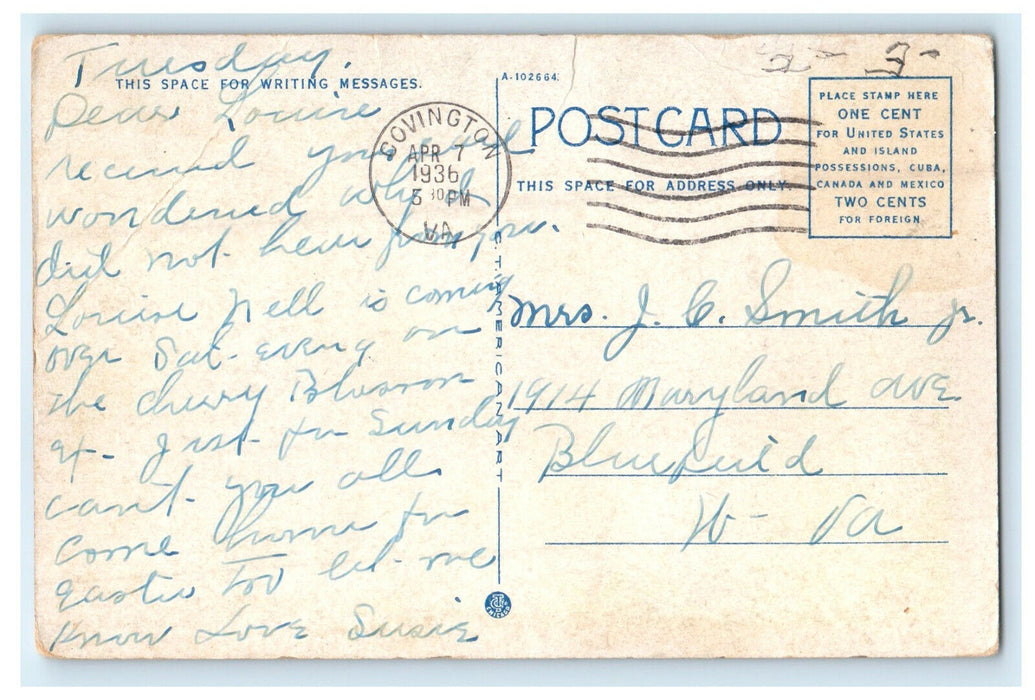 Tuesday.
THIS SPACE FOR WRITING MESSAGES.
Dear Louise
received your
wondered why I
did not hear from you.
Louise Nell is coming
over Sat. evening on
the cherry Blossom
ex. Just for Sunday
can't you all
come home for
easter too let me
know Love Susie
COVINGTON
APR 7
1936
5 30 PM
VA.
A-102664.
POST CARD
THIS SPACE FOR ADDRESS ONLY.
PLACE STAMP HERE
ONE CENT
FOR UNITED STATES
AND ISLAND
POSSESSIONS, CUBA,
CANADA AND MEXICO
TWO CENTS
FOR FOREIGN
3-
C.T. AMERICAN ART
Mrs. J. C. Smith Jr.
1914 Maryland ave
Bluefield
W- Va
CHICAGO